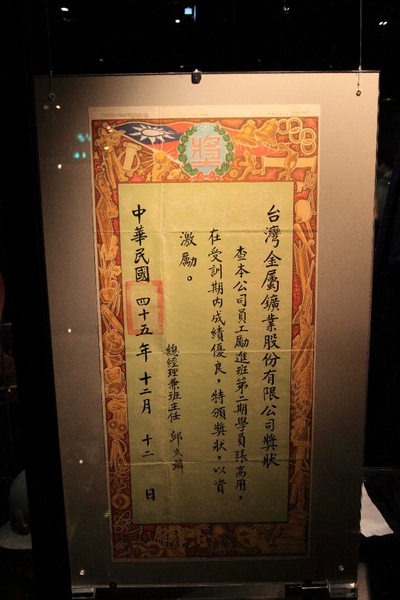 獎
台灣金屬鑛業股份有限公司獎狀
查本公司員工勵進班第二期學員張高用，
在受訓期內成績優良，特頒獎狀，以資
激勵。
總經理兼班主任 邱
中華民國 四十五年 十二月 十二 日